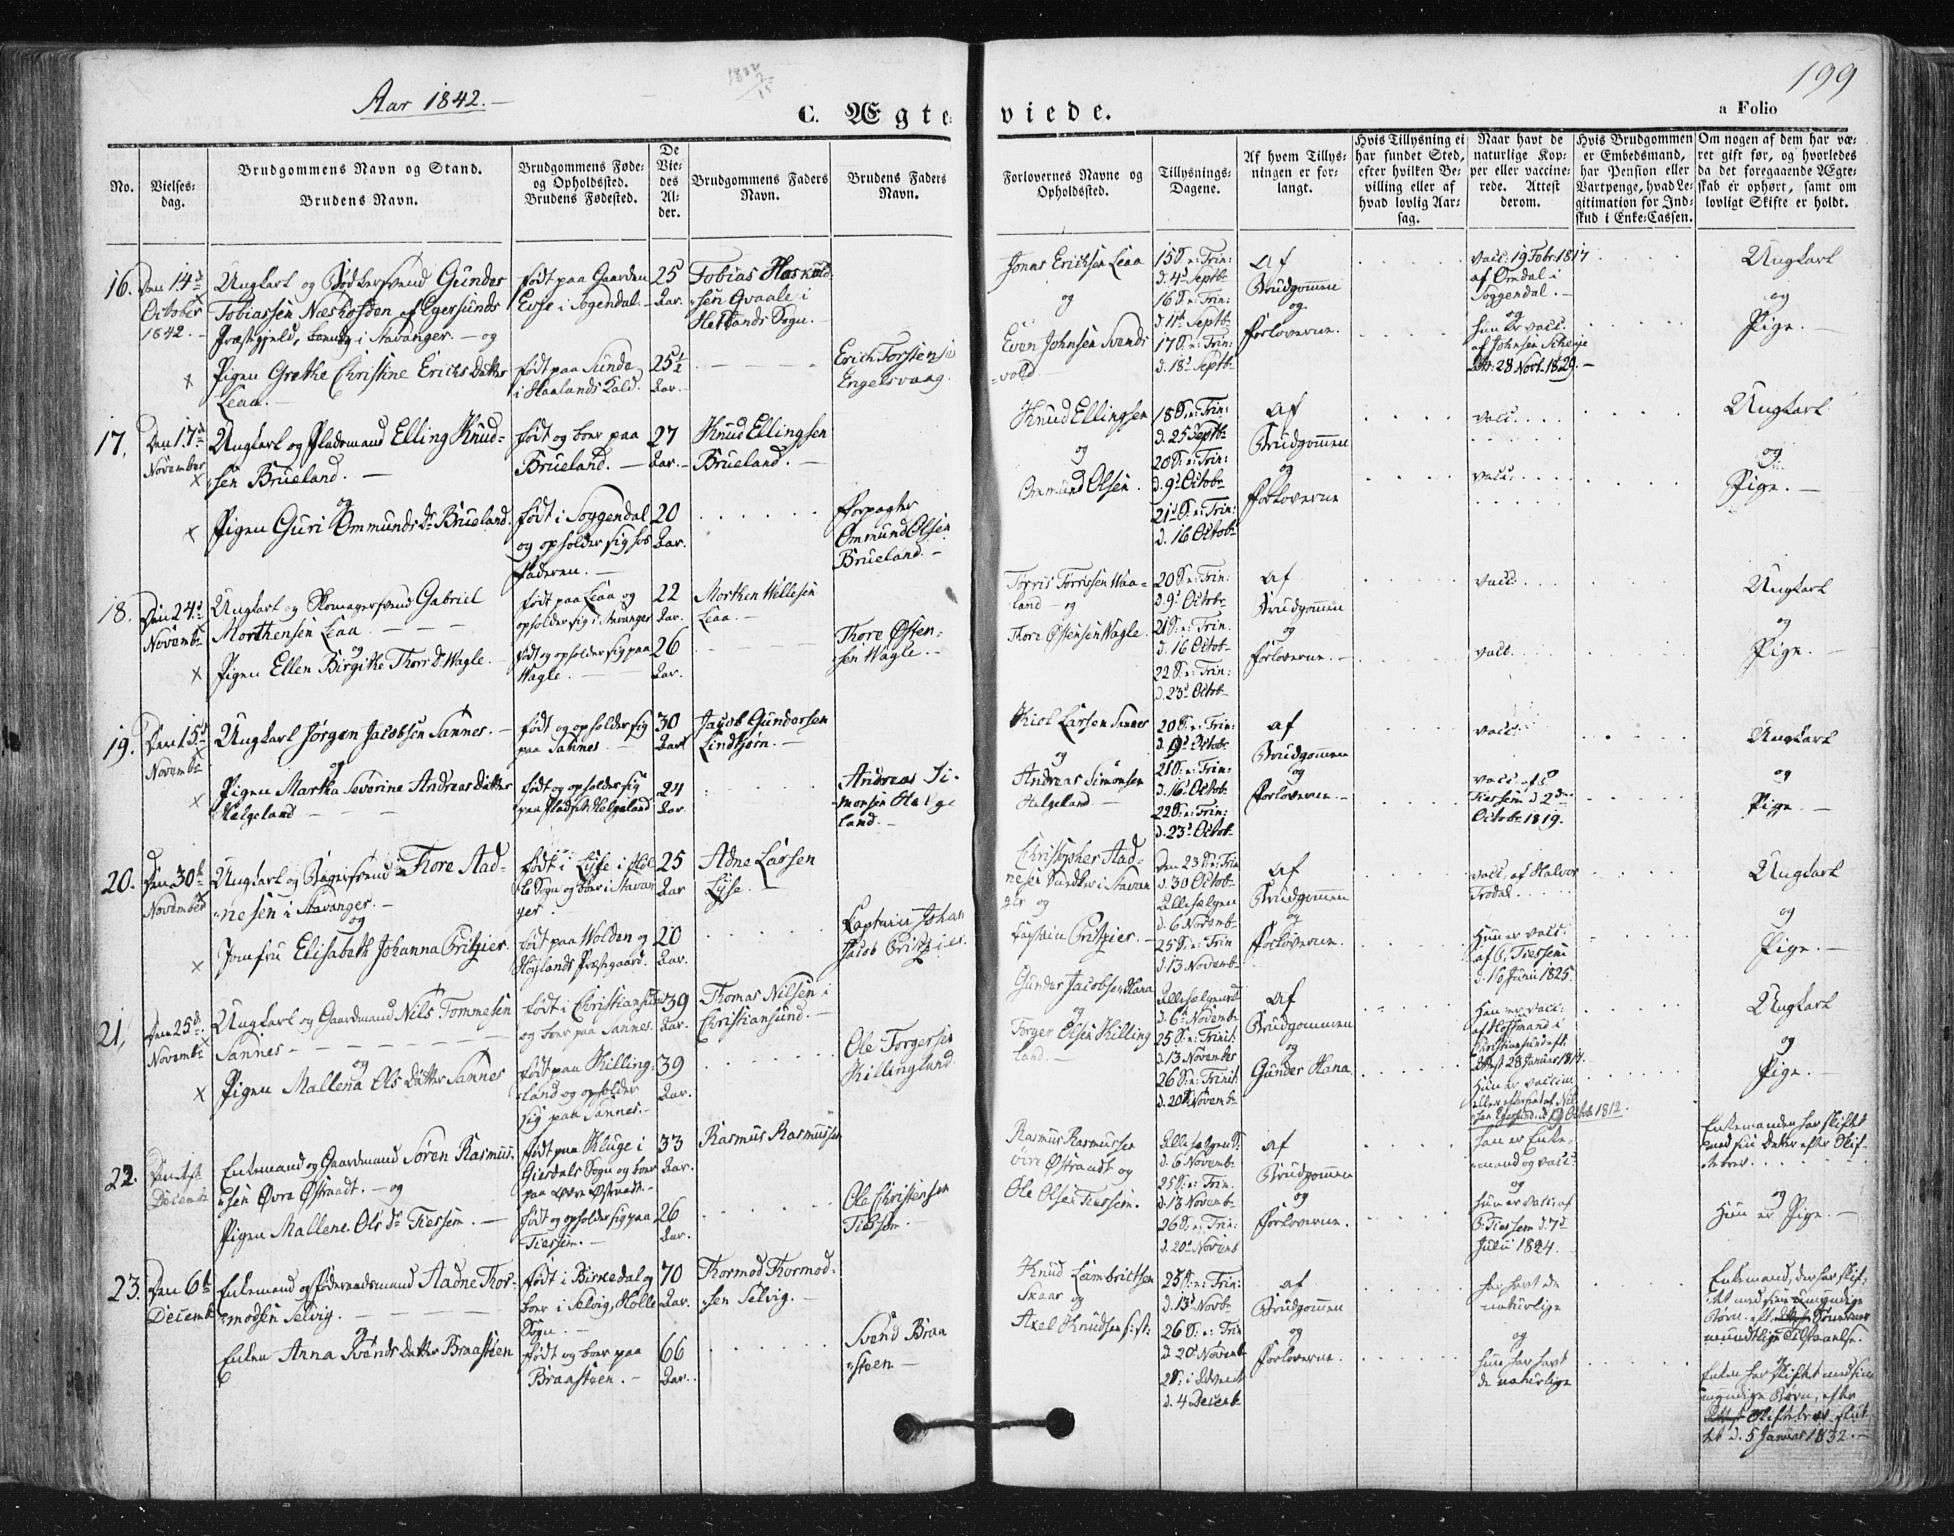 Aar 1842.
199
C. Ægteviede.
a Folio
No.
Vielses-dag.
Brudgommens Navn og Stand.
Brudens Navn.
Brudgommens Føde- og Opholdssted.
Brudens Fødested.
De Viedes Alder.
Brudgommens Faders Navn.
Brudens Faders Navn.
Forlovernes Navne og Opholdssted.
Tillysnings-Dagene.
Af hvem Tillysningen er forlangt.
Hvis Tillysning ei har fundet Sted, efter hvilken Bevilling eller af hvad lovlig Aarsag.
Naar havt de naturlige Kopper eller vaccinerede. Attest derom.
Hvis Brudgommen er Embedsmand, har Pension eller Vartpenge, hvad Legitimation for Indskud i Enke-Cassen.
Om nogen af dem har været gift før, og hvorledes da det foregaaende Ægteskab er ophørt, samt om lovligt Skifte er holdt.
16. Den 14de October 1842.
Ungkarl og Bødkersvend Gunder
Tobiassen Næshosden af Egersunds
Præstegjeld, boende i Stavanger. — og
Pigen Grethe Christine Erichs Datter
Leaa. —
født paa Gaarden
Evje i Sogendal. —
født paa Sunde
i Haalands Kald.
25 Aar.
25½ Aar.
Tobias
Qvaale i
Hetlands Sogn.
Erich Torstensen
Engelsvaag.
Jonas Erichsen Leaa
og
Even Johnsen Svends
vold
15 S. e: Trin:
d. 4de Septb
16 S. e: Trin:
d. 11te Septb
17 S. e: Trin:
d. 18de Septb
Af
Brudgommen
og
Forloverne.
vacc. 19 Febr. 1817
af Omdal i
Soggendal. —
og
hun er vacc.
28 Novb. 1829. —
Ungkarl
og
Pige. —
17. Den 17de November
Ungkarl og Pladsmand Elling Knud-
sen Brueland. —
og
Pigen Guri Ommunds Dr Brueland.
født og boer paa
Brueland. —
født i Soggendal
og opholder sig hos
Faderen. —
27 Aar.
20 Aar.
Knud Ellingsen
Brueland. —
Forpagter
Ommund Olsen
Brueland. —
Knud Ellingsen
og
Ommund Olsen.
18 S. e: Trin:
d. 25 Septb
20 S. e: Trin:
d. 9de Octobr
21 S. e: Trin:
d. 16 Octob
af
Brudgommen
og
Forloverne
vacc.
vacc.
Ungkarl
og
Pige. —
18. Den 24de Novemb
Ungkarl og Skomagersvend Gabriel
Morthensen Leaa.
og
Pigen Ellen Birgithe Thors Dr Wagle.
født paa Leaa og
opholder sig i Stavanger
født og opholder sig paa
Wagle. —
22 Aar.
26 Aar.
Morthen Willesen
Leaa. —
Thore Østen-
sen Wagle. —
Torris Torrissen Waa-
land — og
Thore Østensen Wagle.
20 S. e: Trin:
d. 9de Octobr
21 S. e: Trin.
d. 16 Octob
22 S. e: Trin:
d. 23de Octob
af
Brudgommen
og
Forloverne. —
vacc.
vacc.
Ungkarl
og
Pige. —
19. Den 15de Novemb
Ungkarl Jørgen Jacobsen Sannes. —
og
Pigen Martha Severine Andreas Datter
Helgeland
født og opholder sig
paa Sannes. —
født og opholder sig
paa Pladset Helgeland
30 Aar
24 Aar.
Jacob Gundersen
Lindtjørn. —
Andreas Si-
monsen Helge
land. —
Larsen Sannes
og
Andreas Simonsen
Helgeland. —
20 S. e: Trin:
d. 9de Octob
21 S. e: Trin:
d. 16 Octob
22 S. e: Trin:
d. 23de Octob
af
Brudgommen
og
Forloverne. —
vacc.
vacc. af
Tiessem d. 2den
Octobr 1819.
Ungkarl
og
Pige. —
20. Den 30te November
Ungkarl og Bagersvend Thore Aad-
nesen i Stavanger. —
og
Jomfru Elisabeth Johanna Critzier
født i Lyse i Høl-
le Sogn og boer i Stavan
ger.
født paa Wolden og
Høylands Præstegaard.
25 Aar
20 Aar.
Adne Larsen
Lyse.
Captain Johan
Jacob Critzier.
Christopher Aad-
nesen i Stavan
ger og
Captain Critzier. —
Den 23 S. e: Trin
d. 30 Octob
Allehelgen
d. 6 Novemb
25 S. e: Trin
d. 13 Novemb
af
Brudgommen
og
Forloverne.
vacc. af Halvor
Trodal.
Hun er vacc.
af C. Tiessem
d. 16 Junii 1825.
Ungkarl
og
Pige. —
21. Den 25de Novemb
Ungkarl og Gaardmand Nils Tommesen
Sannes
og
Pigen Mallena Ols Datter Sannes
født i Christiansund
og boer paa Sannes.
født paa Killing-
land og opholder
sig paa Sannes. —
39 Aar.
39 Aar.
Thomas Nilsen i
Christiansund. —
Ole Torgersen
Killingland
Gunder Jacobsen Hana
og
Torger Olsen Killing
land. —
Allehelgensd.
d. 6te Novemb
25 S. e: Trinit:
d. 13 November
26 S. e: Trinit:
d. 20de Novemb
af
Brudgommen
og
Gunder Hana
Han er vacc.
af Hoffmand i
Christiansund
Attest 28 Januar 1814.
Hun er vaccin.
Octobr 1812.
Ungkarl
og
Pige. —
22. Den 1ste December
Enkemand og Gaardmand Søren Rasmus-
sen Øvre Østraadt. — og
Pigen Mallene Ols Dr Tiessem. —
født paa Kluge i
Giesdals Sogn og boer
paa Øvre Østraadt. —
født og opholder sig paa
Tiessem. —
33 Aar.
26 Aar.
Rasmus Rasmussen
Ole Christensen
Tiessem. —
Rasmus Rasmussen
Øvre Østraadt og
Ole Olsen Tiessem.
Allehelgensd.
d. 6 Novemb
25 S. e: Trin.
d. 13 Novemb
26 S. e: Trin:
d. 20de Novemb
af
Brudgommen
og
Forloverne.
han er Enke-
mand og vacc.
og
hun er vacc. af
C. Tiessem d. 7de
Julii 1824.
Enkemanden har skiftet
med sin Datter efter Skif-
tebrev.
og
Hun er Pige. —
23. Den 6te December
Enkemand og Føderaadsmand Aadne Thor-
modsen Selvig.
og
Enken Anna Svends Datter Braastien
født i Birkedal og
boer i Selvig, Hølle
Sogn. —
født og boer paa
Braasteen. —
70 Aar.
66 Aar.
Thormod Thormod-
sen Selvig. —
Svend Braa
steen —
Knud Lambrethsen
Skaar og
Axel Knudsen
25 S. e: Trin:
d. 13de Novb
26 S. e: Trin
d. 20de Novemb
2 S. i Advent
d. 4 Decemb
af
Brudgommen
og
Forloverne.
har havt de
naturlige
og
hun har havt
de naturlige
Enkemand, der har skif-
tet med sine umyndige
Børn
mundtlige Tilstaaelse.
og
Enken har skiftet med sine
myndige Børn, efter
Skiftebrev slut-
tet d. 5 Januar 1832. —